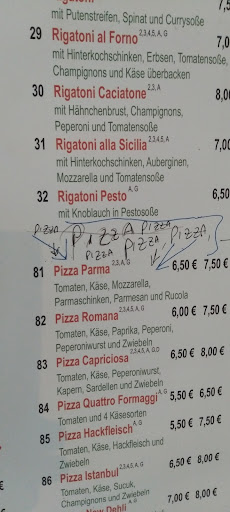 Rigatoni
mit Putenstreifen, Spinat und Currysoße
29 Rigatoni al Forno 2,3,4,5, A, G 7,0
mit Hinterkochschinken, Erbsen, Tomatensoße,
Champignons und Käse überbacken
30 Rigatoni Caciatone 2,3, A 8,0
mit Hähnchenbrust, Champignons,
Peperoni und Tomatensoße
31 Rigatoni alla Sicilia 2,3,4,5, A 7,0
mit Hinterkochschinken, Auberginen,
Mozzarella und Tomatensoße
32 Rigatoni Pesto A, G 6,50
mit Knoblauch in Pestosoße
PIZZA PIZZA PIZZA PIZZA,
PIZZA PIZZA
81 Pizza Parma 2,3, A, G 6,50 € 7,50 €
Tomaten, Käse, Mozzarella,
Parmaschinken, Parmesan und Rucola
82 Pizza Romana 2,3,4,5, A, G 6,00 € 7,50 €
Tomaten, Käse, Paprika, Peperoni,
Peperoniwurst und Zwiebeln
83 Pizza Capriciosa 2,3,4,5, A, G,D 6,50 € 8,00 €
Tomaten, Käse, Peperoniwurst,
Kapern, Sardellen und Zwiebeln
84 Pizza Quattro Formaggi A, G 5,50 € 6,50 €
Tomaten und 4 Käsesorten
85 Pizza Hackfleisch A, G 5,50 € 7,50 €
Tomaten, Käse, Hackfleisch und
Zwiebeln
86 Pizza Istanbul 2,3,4,5, A, G 6,50 € 8,00 €
Tomaten, Käse, Sucuk,
Champignons und Zwiebeln
New Dehli 7,00 € 8,00 €